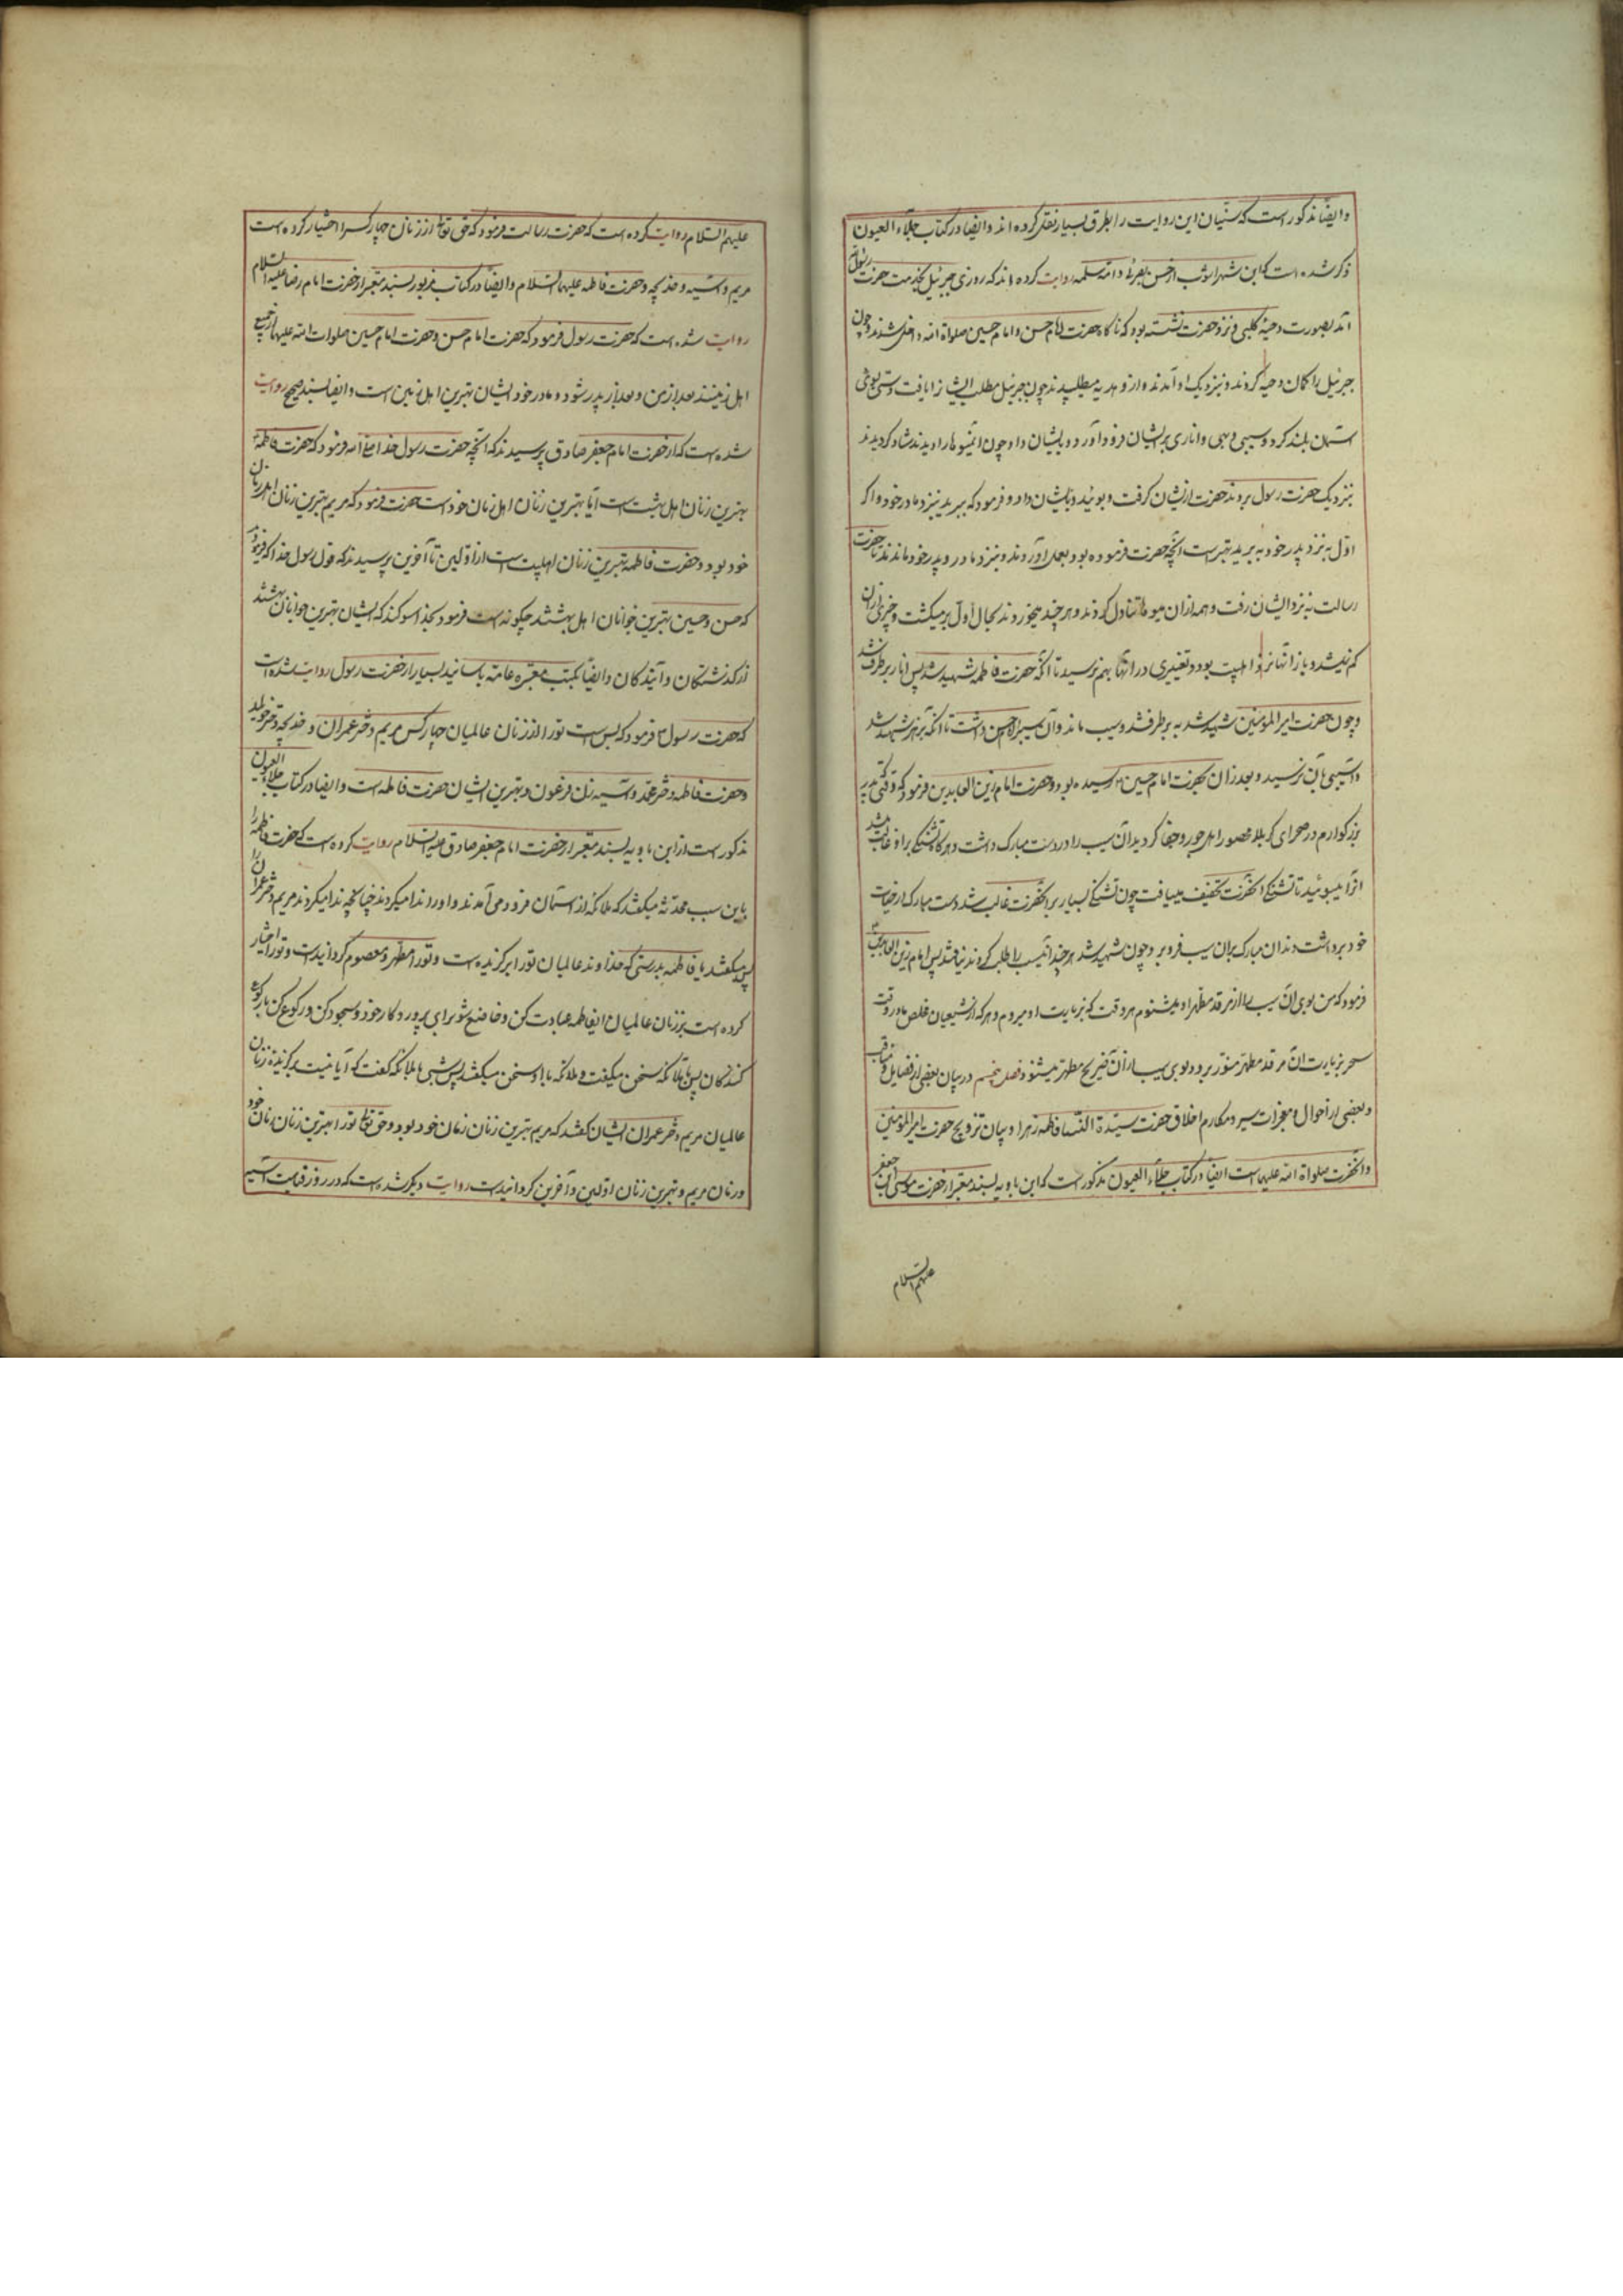 وایضاً مذکور است که سنّیان این روایت را بطرق بسیار نقل کرده اند و ایضا در کتاب جلاء العیون
ذکر شده است که ابن شهراشوب از حسن بصری و ام سلمه روایت کرده اند که روزی جبرئیل بخدمت حضرت رسول
آمد بصورت دحیه کلبی و نزد حضرت نشسته بود که ناکاه حضرت امام حسن و امام حسین صلواة الله داخل شدند و چون
جبرئیل را کمان دحیه کردند و بنزدیک او آمدند و از و هدیه میطلبیدند چون جبرئیل مطلب ایشانرا یافت دستی بسوی
آسمان بلند کرد و سیبی و بهی و اناری برایشان فرود آورد و بایشان داد چون آن میوها را دیدند شاد کردیدند
بنزدیک حضرت رسول بردند حضرت از ایشان کرفت و بوئید و بایشان داد و فرمود که ببرید بنزد مادر خود و اکر
اوّل به نزد پدر خود به برید بهتر است آنچه حضرت فرموده بود بعمل آوردند و بنزد مادر و پدر خود ماندند تا حضرت
رسالت به نزد ایشان رفت و همه از ان میوها تناول کردند و هر چند میخوردند بحال اول بر میکشت و چیزی از ان
کم نمیشد و باز آنها نزد اهلبیت بود و تغییری در آنها بهم نرسید تا آنکه حضرت فاطمه شهید شد پس انار برطرف شد
و چون حضرت امیرالمؤمنین شهید شد به برطرف شد و سیب ماند و آن سیب را امام حسن داشت تا آنکه بزهر شهید شد
و آسیبی بآن نرسید و بعد از ان بحضرت امام حسین رسیده بود و حضرت امام زین العابدین فرمود که وقتی که پدر
بزرکوارم در صحرای کربلا محصور اهل جور و جفا کردید آن سیب را در دست مبارک داشت و هر کاه تشنکی بر او غالب میشد
آنرا میبوئید تا تشنکی آنحضرت تخفیف مییافت چون تشنکی بسیار بر آنحضرت غالب شد دست مبارک از حیات
خود برداشت دندان مبارک بران سیب فرو برد و چون شهید شد هر چند آن سیب را طلب کردند نیافتند پس امام زین العابدین
فرمود که من بوی آن سیب را از مرقد مطهر او میشنوم هر وقت که بزیارت او میروم و هر که از شیعیان مخلص ما در وقت
سحر بزیارت آن مرقد مطهر منوّر برود بوی سیب از آن ضریح مطهر میشنود فصل پنجم در بیان بعضی از فضایل و مناقب
و بعضی از احوال و معجزات سیر و مکارم اخلاق حضرت سیّدة النسا فاطمه زهرا و بیان تزویج حضرت با امیرالمؤمنین
و آنحضرت صلواة الله علیهما است ایضاً در کتاب جلاء العیون مذکور است که ابن بابویه بسند معتبر از حضرت موسی ابن جعفر
علیهم السلام
علیهم السّلام روایت کرده است که حضرت رسالت فرمود که حق تعالی از زنان چهار کس را اختیار کرده است
مریم و آسیه و خدیجه و حضرت فاطمه علیها السّلام و ایضاً در کتاب مزبور بسند معتبر از حضرت امام رضا علیه السلام
روایت شده است که حضرت رسول فرمود که حضرت امام حسن و حضرت امام حسین صلوات الله علیهما از جمیع
اهل زمینند بعد از من و بعد از پدر خود و مادر خود ایشان بهترین اهل زمین است و ایضا بسند صحیح روایت
شده است که از حضرت امام جعفر صادق پرسیدند که آنچه حضرت رسول خدا فرمود که حضرت فاطمه
بهترین زنان اهل بهشت است آیا بهترین زنان اهل زمان خود است حضرت فرمود که مریم بهترین زنان اهل زمان
خود بود و حضرت فاطمه بهترین زنان اهلبیت است از اوّلین تا آخرین پرسیدند که قول رسول خدا که فرمود
که حسن و حسین بهترین جوانان اهل بهشتند چکونه است فرمود بخدا سوکند که ایشان بهترین جوانان بهشتند
از کذشتکان و آیندکان و ایضاً بکتب معتبره عامّه باسانید بسیار از حضرت رسول روایت شده است
که حضرت رسول فرمود که بس است تورا از زنان عالمیان چهار کس مریم دختر عمران و خدیجه دختر خویلد
و حضرت فاطمه دختر محمّد و آسیه زن فرعون و بهترین ایشان حضرت فاطمه است و ایضا در کتاب جلاء العیون
مذکور است از ابن بابویه بسند معتبر از حضرت امام جعفر صادق علیه السّلام روایت کرده است که حضرت فاطمه را
باین سبب محدثه میکفتند که ملائکه از آسمان فرود می آمدند و او را ندا میکردند چنانچه ندا میکردند مریم دختر عمران را
پس میکفتند یا فاطمه بدرستی که خداوند عالمیان تورا برکزیده است و تورا مطهر و معصوم کردانیده است و تورا اختیار
کرده است بر زنان عالمیان ایفاطمه عبادت کن و خاضع شو برای پرورد کار خود و سجود کن و رکوع کن با رکوع
کنندکان پس با ملائکه سخن میکفت و ملائکه با او سخن میکفتند پس شبی با ملائکه کفت که آیا نیست برکزیده زنان
عالمیان مریم دختر عمران ایشان کفتند که مریم بهترین زنان زمان خود بود و حق تعالی تورا بهترین زنان زمان خود
و زمان مریم و بهترین زنان اوّلین و آخرین کردانیده است روایت دیکر شده است که در روز قیامت آسیه